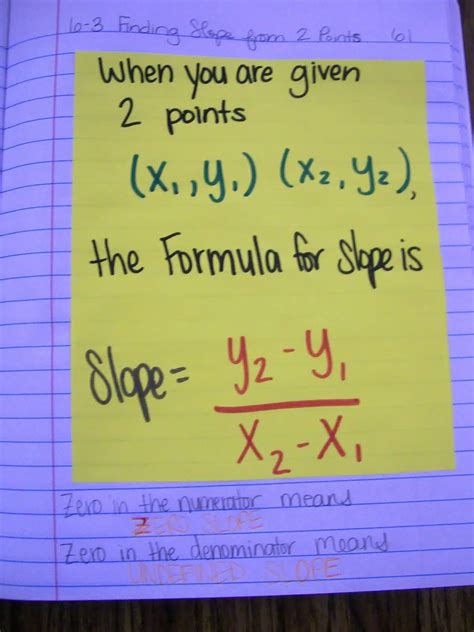 6-3 Finding Slope from 2 Points 61
When you are given
2 points
(x₁, y₁) (x₂, y₂),
the Formula for Slope is
Slope = y₂ - y₁
x₂ - x₁
Zero in the numerator means
ZERO SLOPE
Zero in the denominator means
UNDEFINED SLOPE